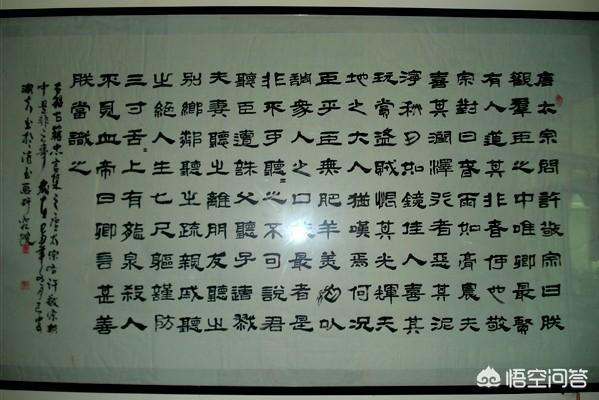 唐太宗問許敬宗曰朕
觀羣臣之中唯卿最賢
有人道其非何也敬
宗對曰春雨如膏農夫
喜其潤澤行者惡其泥
濘秋月如鏡佳人喜其
玩賞盜賊其光輝天
地之大人猶嘆焉何況
臣乎臣無肥羊美以
調衆人之口最者是
非不可聽=之不可說君
聽臣遭誅父聽子遭戮
夫妻聽之離朋友聽之
別鄉鄰聽之疏親戚聽
之絕人生七尺軀謹防
三寸舌=上有龍泉殺人
不見血帝曰卿言甚善
朕當識之
之唐太宗許敬宗
中是非之事
悟空问答